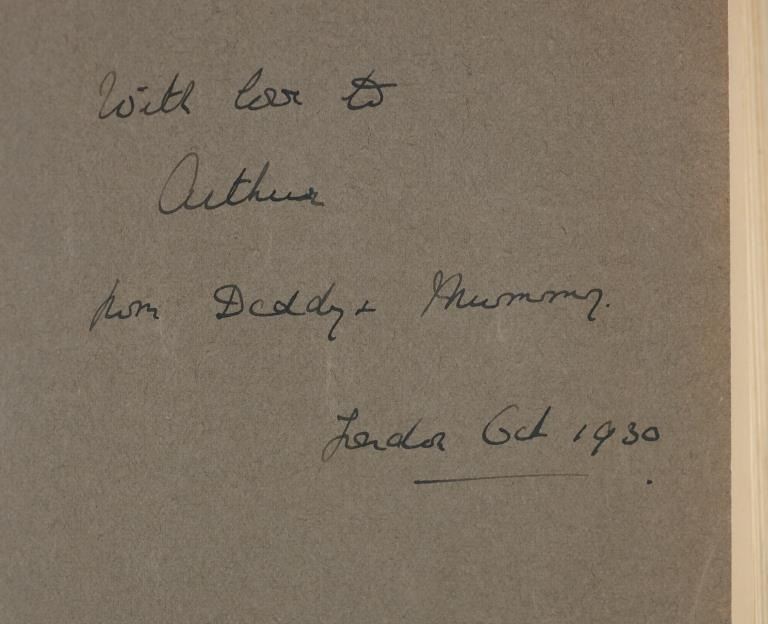 With love to
Arthur
from Daddy + Mummy.
London Oct 1930.